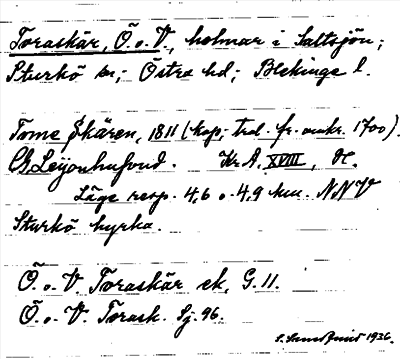 Toraskär, Ö. o. V., holmar i Saltsjön;
Sturkö sn; Östra hd; Blekinge l.
Torne Skären, 1811 (kop; trol. fr. omkr. 1700).
CG Leijonhufvud. Kr. A. XVIII,
Läge resp. 4,6 o. 4,9 km. NNV
Sturkö kyrka.
Ö. o. V. Toraskär ek. G. 11.
Ö. o. V. Torask. Sj. 96.
1936.